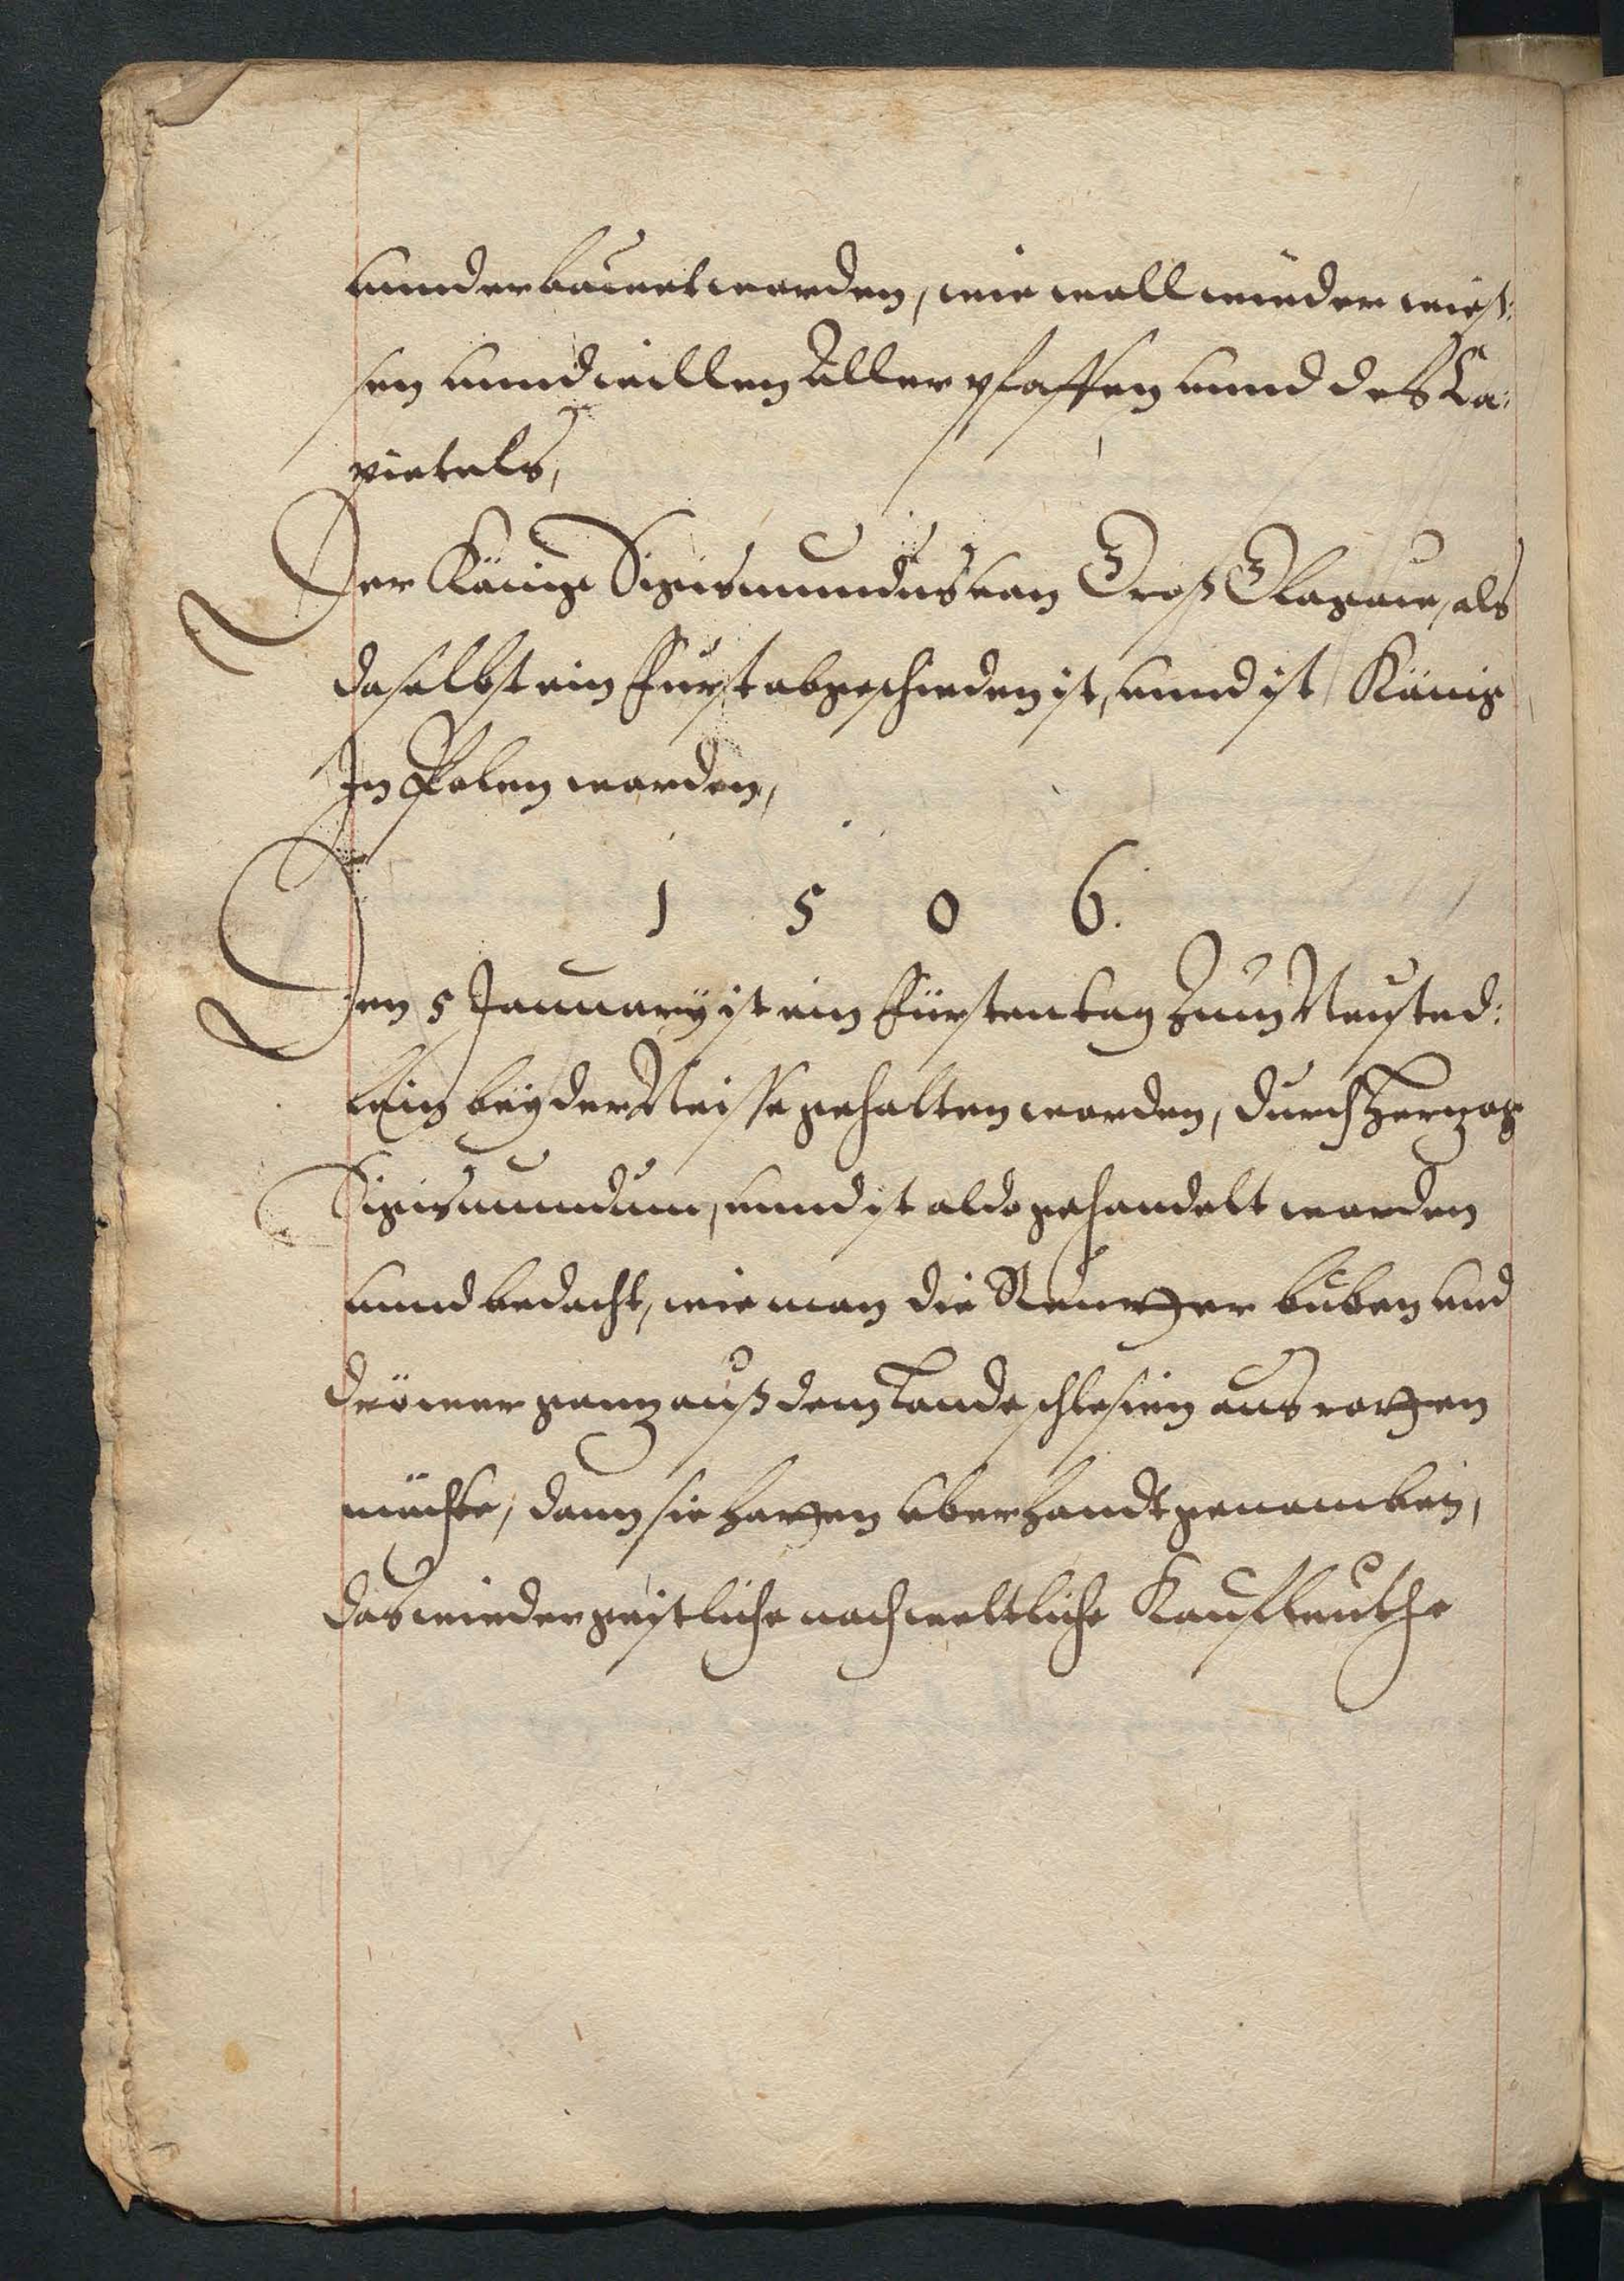 unnd erbauet worden, wie woll wieder wieß:
sen unnd willen Aller pfaffen unnd des Ca:
pietels,
Der Könige Sigismundus von Groß Glogaw, als
daselbst ein Fürst abgeschieden ist, unnd ist König
In Polen worden,
1 5 0 6.
Den 5 January ist ein Fürstentag Zum Neusted:
lein bey der Neisse gehalten worden, durch Herzog
Sigismundum, unnd ist aldo gehandelt worden
unnd bedacht, wie man die buben und
gannz auß dem Lande schlesien aus rotzen
möchte, dann sie hatzen uberhandt genomben,
das wieder geistliche noch weltliche Kauffleuthe